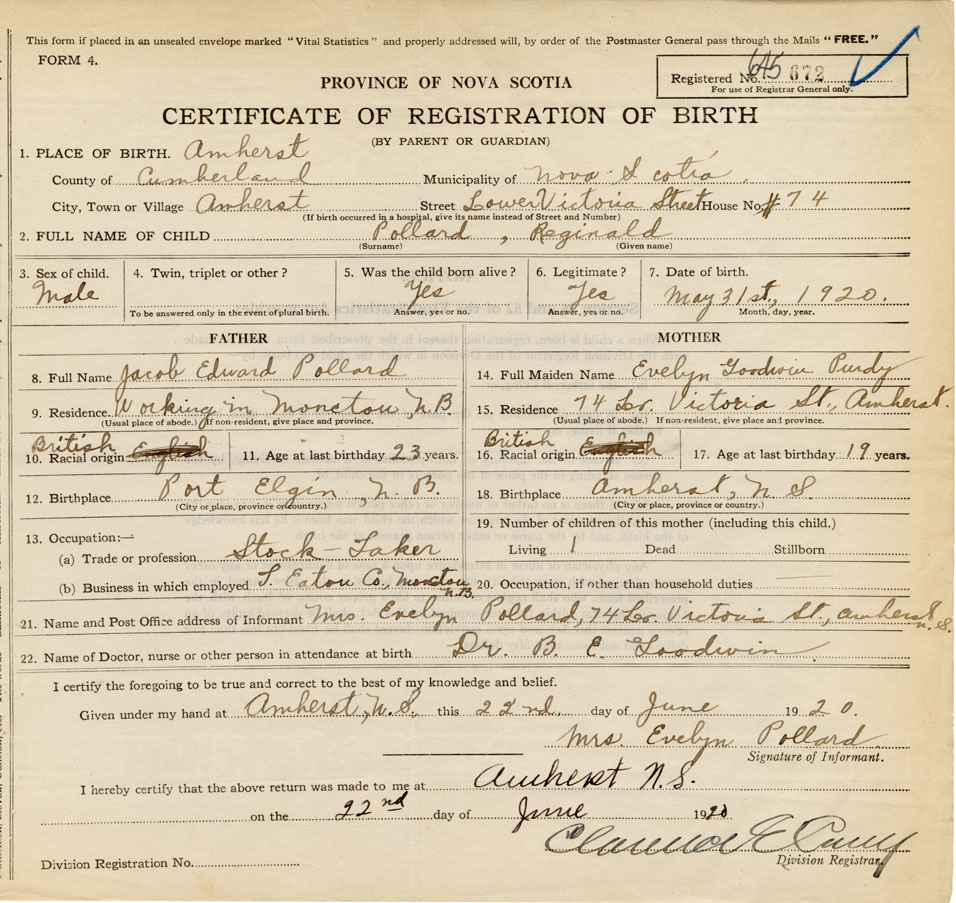 This form if placed in an unsealed envelope marked "Vital Statistics" and properly addressed will, by order of the Postmaster General pass through the Mails "FREE."
FORM 4.
Registered No. 645 672
For use of Registrar General only.
PROVINCE OF NOVA SCOTIA
CERTIFICATE OF REGISTRATION OF BIRTH
(BY PARENT OR GUARDIAN)
1. PLACE OF BIRTH. Amherst
County of Cumberland Municipality of Nova Scotia
City, Town or Village Amherst Street Lower Victoria Street House No. #74
(If birth occurred in a hospital, give its name instead of Street and Number)
2. FULL NAME OF CHILD Pollard, Reginald
(Surname) (Given name)
3. Sex of child. 4. Twin, triplet or other? 5. Was the child born alive? 6. Legitimate? 7. Date of birth.
Male Yes Yes May 31st, 1920.
To be answered only in the event of plural birth. Answer, yes or no. Answer, yes or no. Month, day, year.
FATHER MOTHER
8. Full Name Jacob Edward Pollard 14. Full Maiden Name Evelyn Goodwin Purdy
9. Residence. Working in Moncton N.B. 15. Residence 74 Lr. Victoria St., Amherst.
(Usual place of abode.) If non-resident, give place and province. (Usual place of abode.) If non-resident, give place and province.
British British
10. Racial origin English 11. Age at last birthday 23 years. 16. Racial origin English 17. Age at last birthday 19 years.
12. Birthplace Port Elgin, N.B. 18. Birthplace Amherst, N.S
(City or place, province or country.) (City or place, province or country.)
13. Occupation:— 19. Number of children of this mother (including this child.)
(a) Trade or profession Stock-Taker Living 1 Dead Stillborn
(b) Business in which employed T. Eaton Co., Moncton N.B. 20. Occupation, if other than household duties
21. Name and Post Office address of Informant Mrs. Evelyn Pollard, 74 Lr. Victoria St., Amherst N.S.
22. Name of Doctor, nurse or other person in attendance at birth Dr. B. E. Goodwin
I certify the foregoing to be true and correct to the best of my knowledge and belief.
Given under my hand at Amherst, N.S. this 22nd. day of June 1920.
Mrs. Evelyn Pollard
Signature of Informant.
I hereby certify that the above return was made to me at Amherst N.S.
on the 22nd day of June 1920
Division Registration No. Division Registrar.